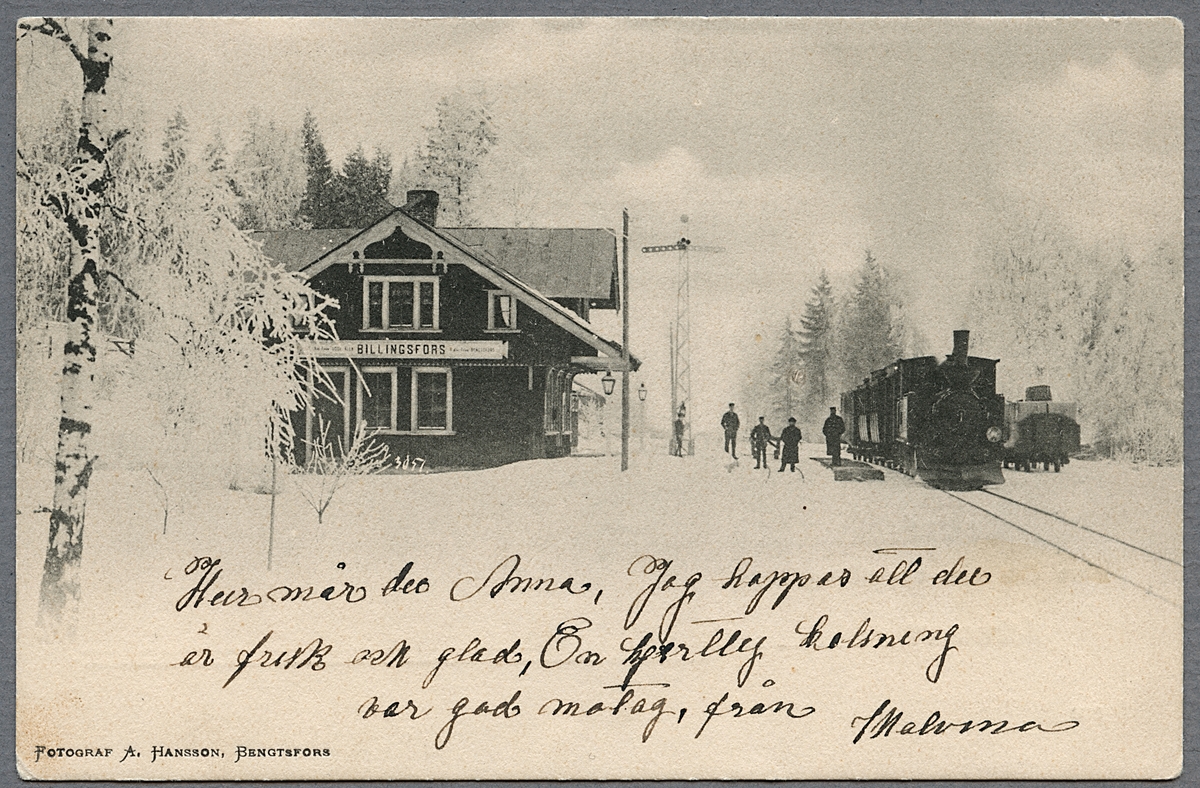 BILLINGSFORS
3057
Hur mår du Anna, Jag hoppas att du
är frisk och glad, En hjertlig halsning
var god motag, från
Malvina
FOTOGRAF A. HANSSON, BENGTSFORS